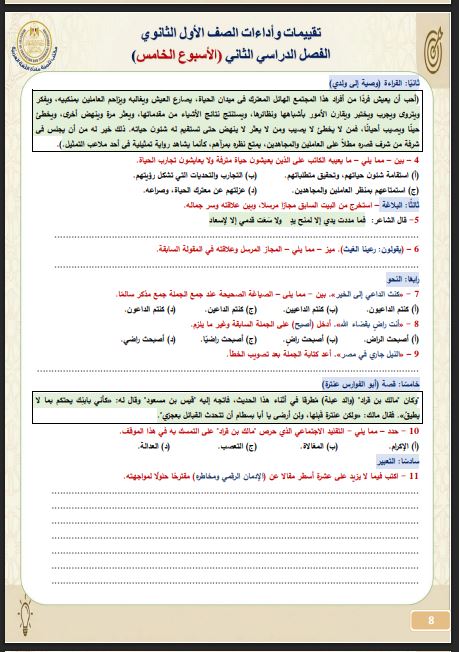 تقييمات وأداءات الصف الأول الثانوي
الفصل الدراسي الثاني (الأسبوع الخامس)
ثانيًا: القراءة (وصية إلى ولدي)
(أحب أن يعيش فردًا من أفراد هذا المجتمع الهائل المعترك في ميدان الحياة، يصارع العيش ويغالبه ويزاحم العاملين بمنكبيه، ويفكر
ويتروى ويجرب ويختبر ويقارن الأمور بأشباهها ونظائرها، ويستنتج نتائج الأشياء من مقدماتها، ويعثر مرة وينهض أخرى، ويخطئ
حينًا ويصيب أحيانًا، فمن لا يخطئ لا يصيب ومن لا يعثر لا ينهض حتى تستقيم له شئون حياته. ذلك خير له من أن يجلس في
شرفة من شرف قصره مطلًا على العاملين والمجاهدين، يمتع نظره بمرآهم، كأنما يشاهد رواية تمثيلية في أحد ملاعب التمثيل.).
4 – بين – مما يلي – ما يعيبه الكاتب على الذين يعيشون حياة مترفة ولا يعايشون تجارب الحياة.
(أ) استقامة شئون حياتهم، وتحقيق متطلباتهم. (ب) التجارب والتحديات التي تشكل رؤيتهم.
(ج) استمتاعهم بمنظر العاملين والمجاهدين. (د) عزلتهم عن معترك الحياة، وصراعه.
ثالثًا: البلاغة – استخرج من البيت السابق مجازًا مرسلا، وبين علاقته وسر جماله.
5- قال الشاعر: فما مددت يدي إلا لمنح يدٍ ولا سَعَت قدمي إلا لإسعاد
6 – (يقولون: رعينا الغيث). ميز – مما يلي – المجاز المرسل وعلاقته في المقولة السابقة.
رابعًا: النحو
7 – «كنتَ الداعي إلى الخير». بين – مما يلي – الصياغة الصحيحة عند جمع الجملة جمع مذكر سالمًا.
(أ) كنتم الداعيون. (ب) كنتم الداعيين. (ج) كنتم الداعين. (د) كنتم الداعون.
8 – «أنت راضٍ بقضاء الله». أدخل (أصبح) على الجملة السابقة وغير ما يلزم.
(أ) أصبحت الراضي. (ب) أصبحت راضٍ. (ج) أصبحت راضيًا. (د) أصبحت راضي.
9 – «النيل جاري في مصر». أعد كتابة الجملة بعد تصويب الخطأ.
خامسًا: قصة (أبو الفوارس عنترة)
"وكان "مالك بن قراد" (والد عبلة) مطرقا في أثناء هذا الحديث، فاتجه إليه "قيس بن مسعود" وقال له: «كأني بابنك يحتكم بما لا
يطيق». فقال مالك: «ولكن عنترة قبلها، ولن أرضى يا أبا بسطام أن تتحدث القبائل بعجزي".
10 – حدد – مما يلي – التقليد الاجتماعي الذي حرص "مالك بن قراد" على التمسك به في هذا الموقف.
(أ) الإكرام. (ب) المغالاة. (ج) التعصب. (د) العدالة.
سادسًا: التعبير
11 – اكتب فيما لا يزيد على عشرة أسطر مقالا عن (الإدمان الرقمي ومخاطره) مقترحًا حلولًا لمواجهته.
8